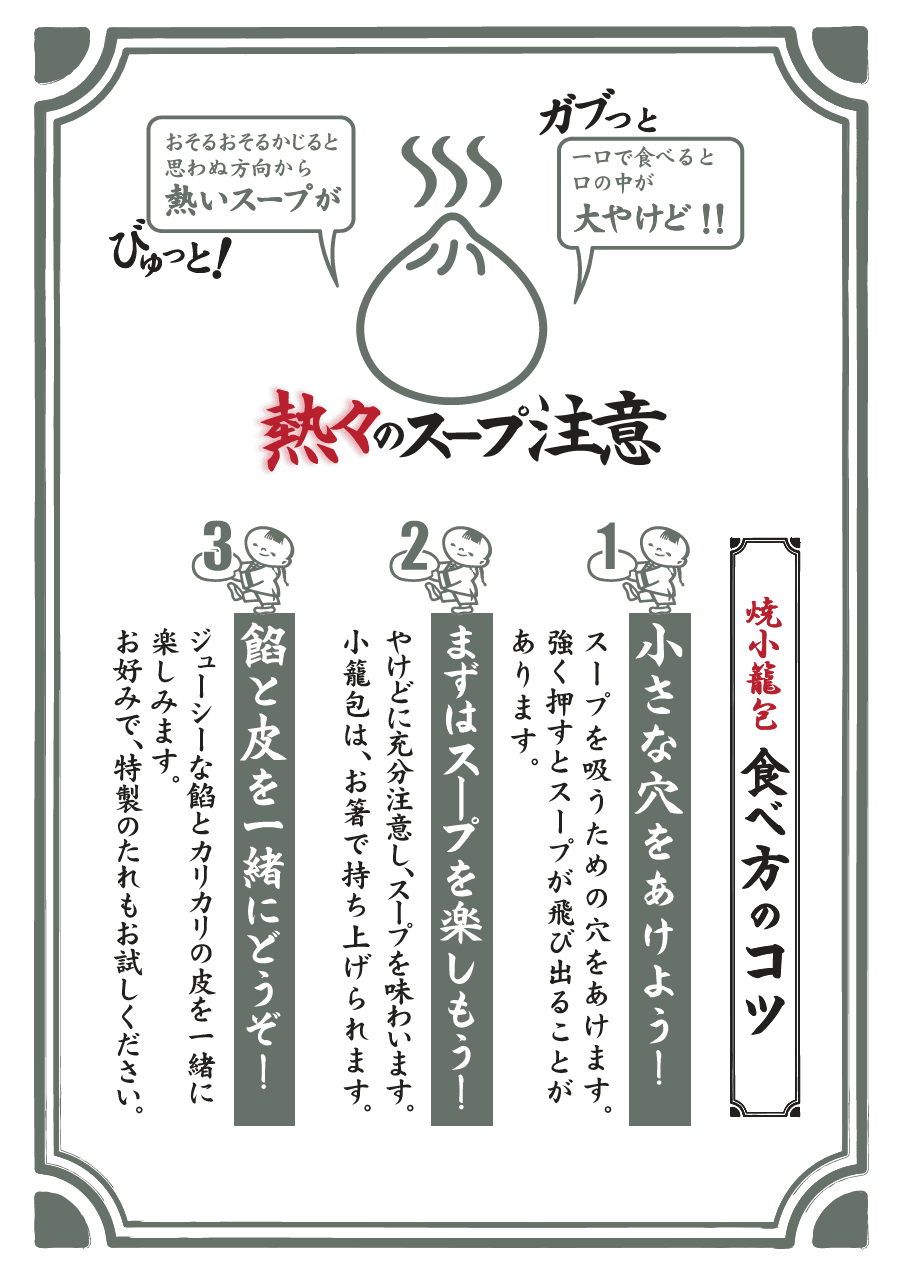 おそるおそるかじると
思わぬ方向から
熱いスープが
びゅっと!
ガブっと
一口で食べると
口の中が
大やけど!!
熱々のスープ注意
焼小龍包 食べ方のコツ
1
小さな穴をあけよう!
スープを吸うための穴をあけます。
強く押すとスープが飛び出ることが
あります。
2
まずはスープを楽しもう!
やけどに充分注意し、スープを味わいます。
小籠包は、お箸で持ち上げられます。
3
餡と皮を一緒にどうぞ!
ジューシーな餡とカリカリの皮を一緒に
楽しみます。
お好みで、特製のたれもお試しください。